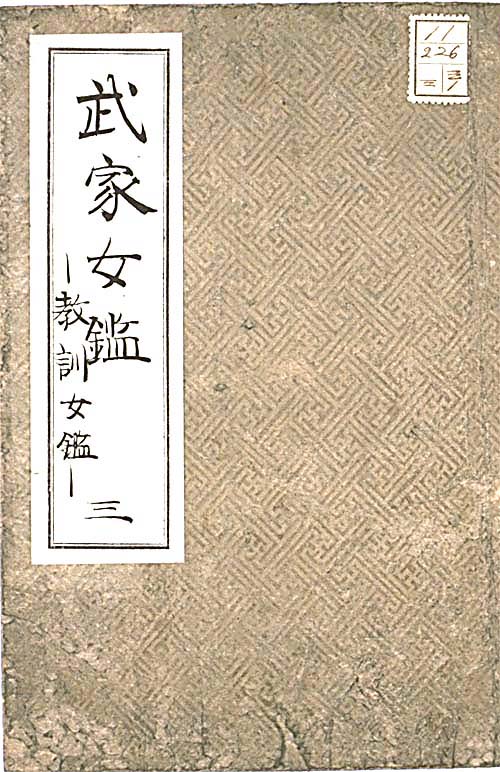 武家女鑑
｜教訓女鑑｜
三
11
226
三